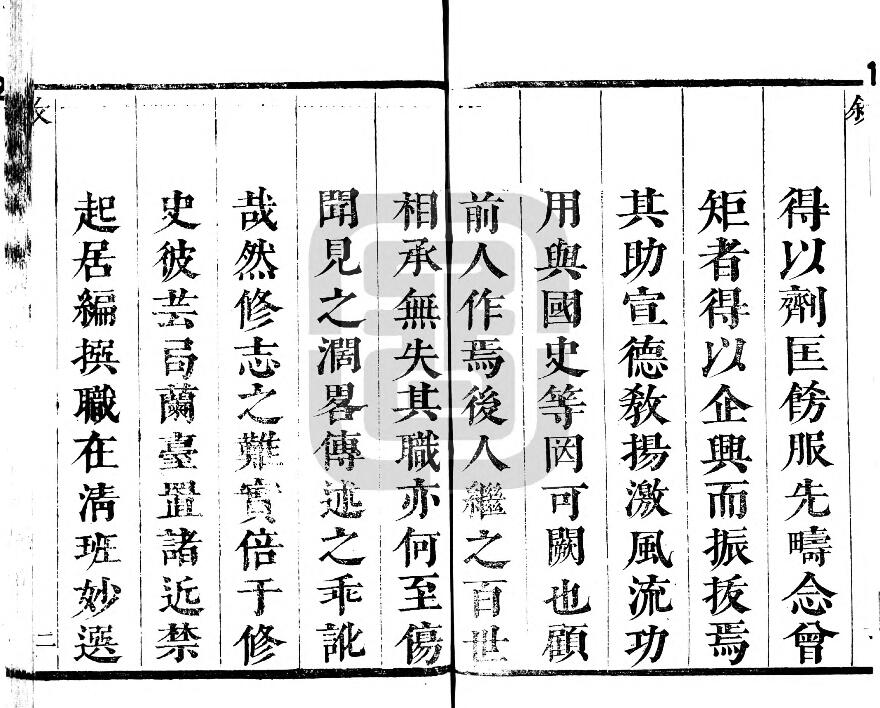 得以劑匡飭服先疇念曾
矩者得以企興而振拔焉
其助宣德敎揚激風流功
用與國史等罔可闕也顧
前人作焉後人繼之百世
相承無失其職亦何至傷
聞見之濶畧傳述之乖訛
哉然修志之難實倍于修
史彼芸局蘭臺置諸近禁
起居編撰職在清班妙選
二